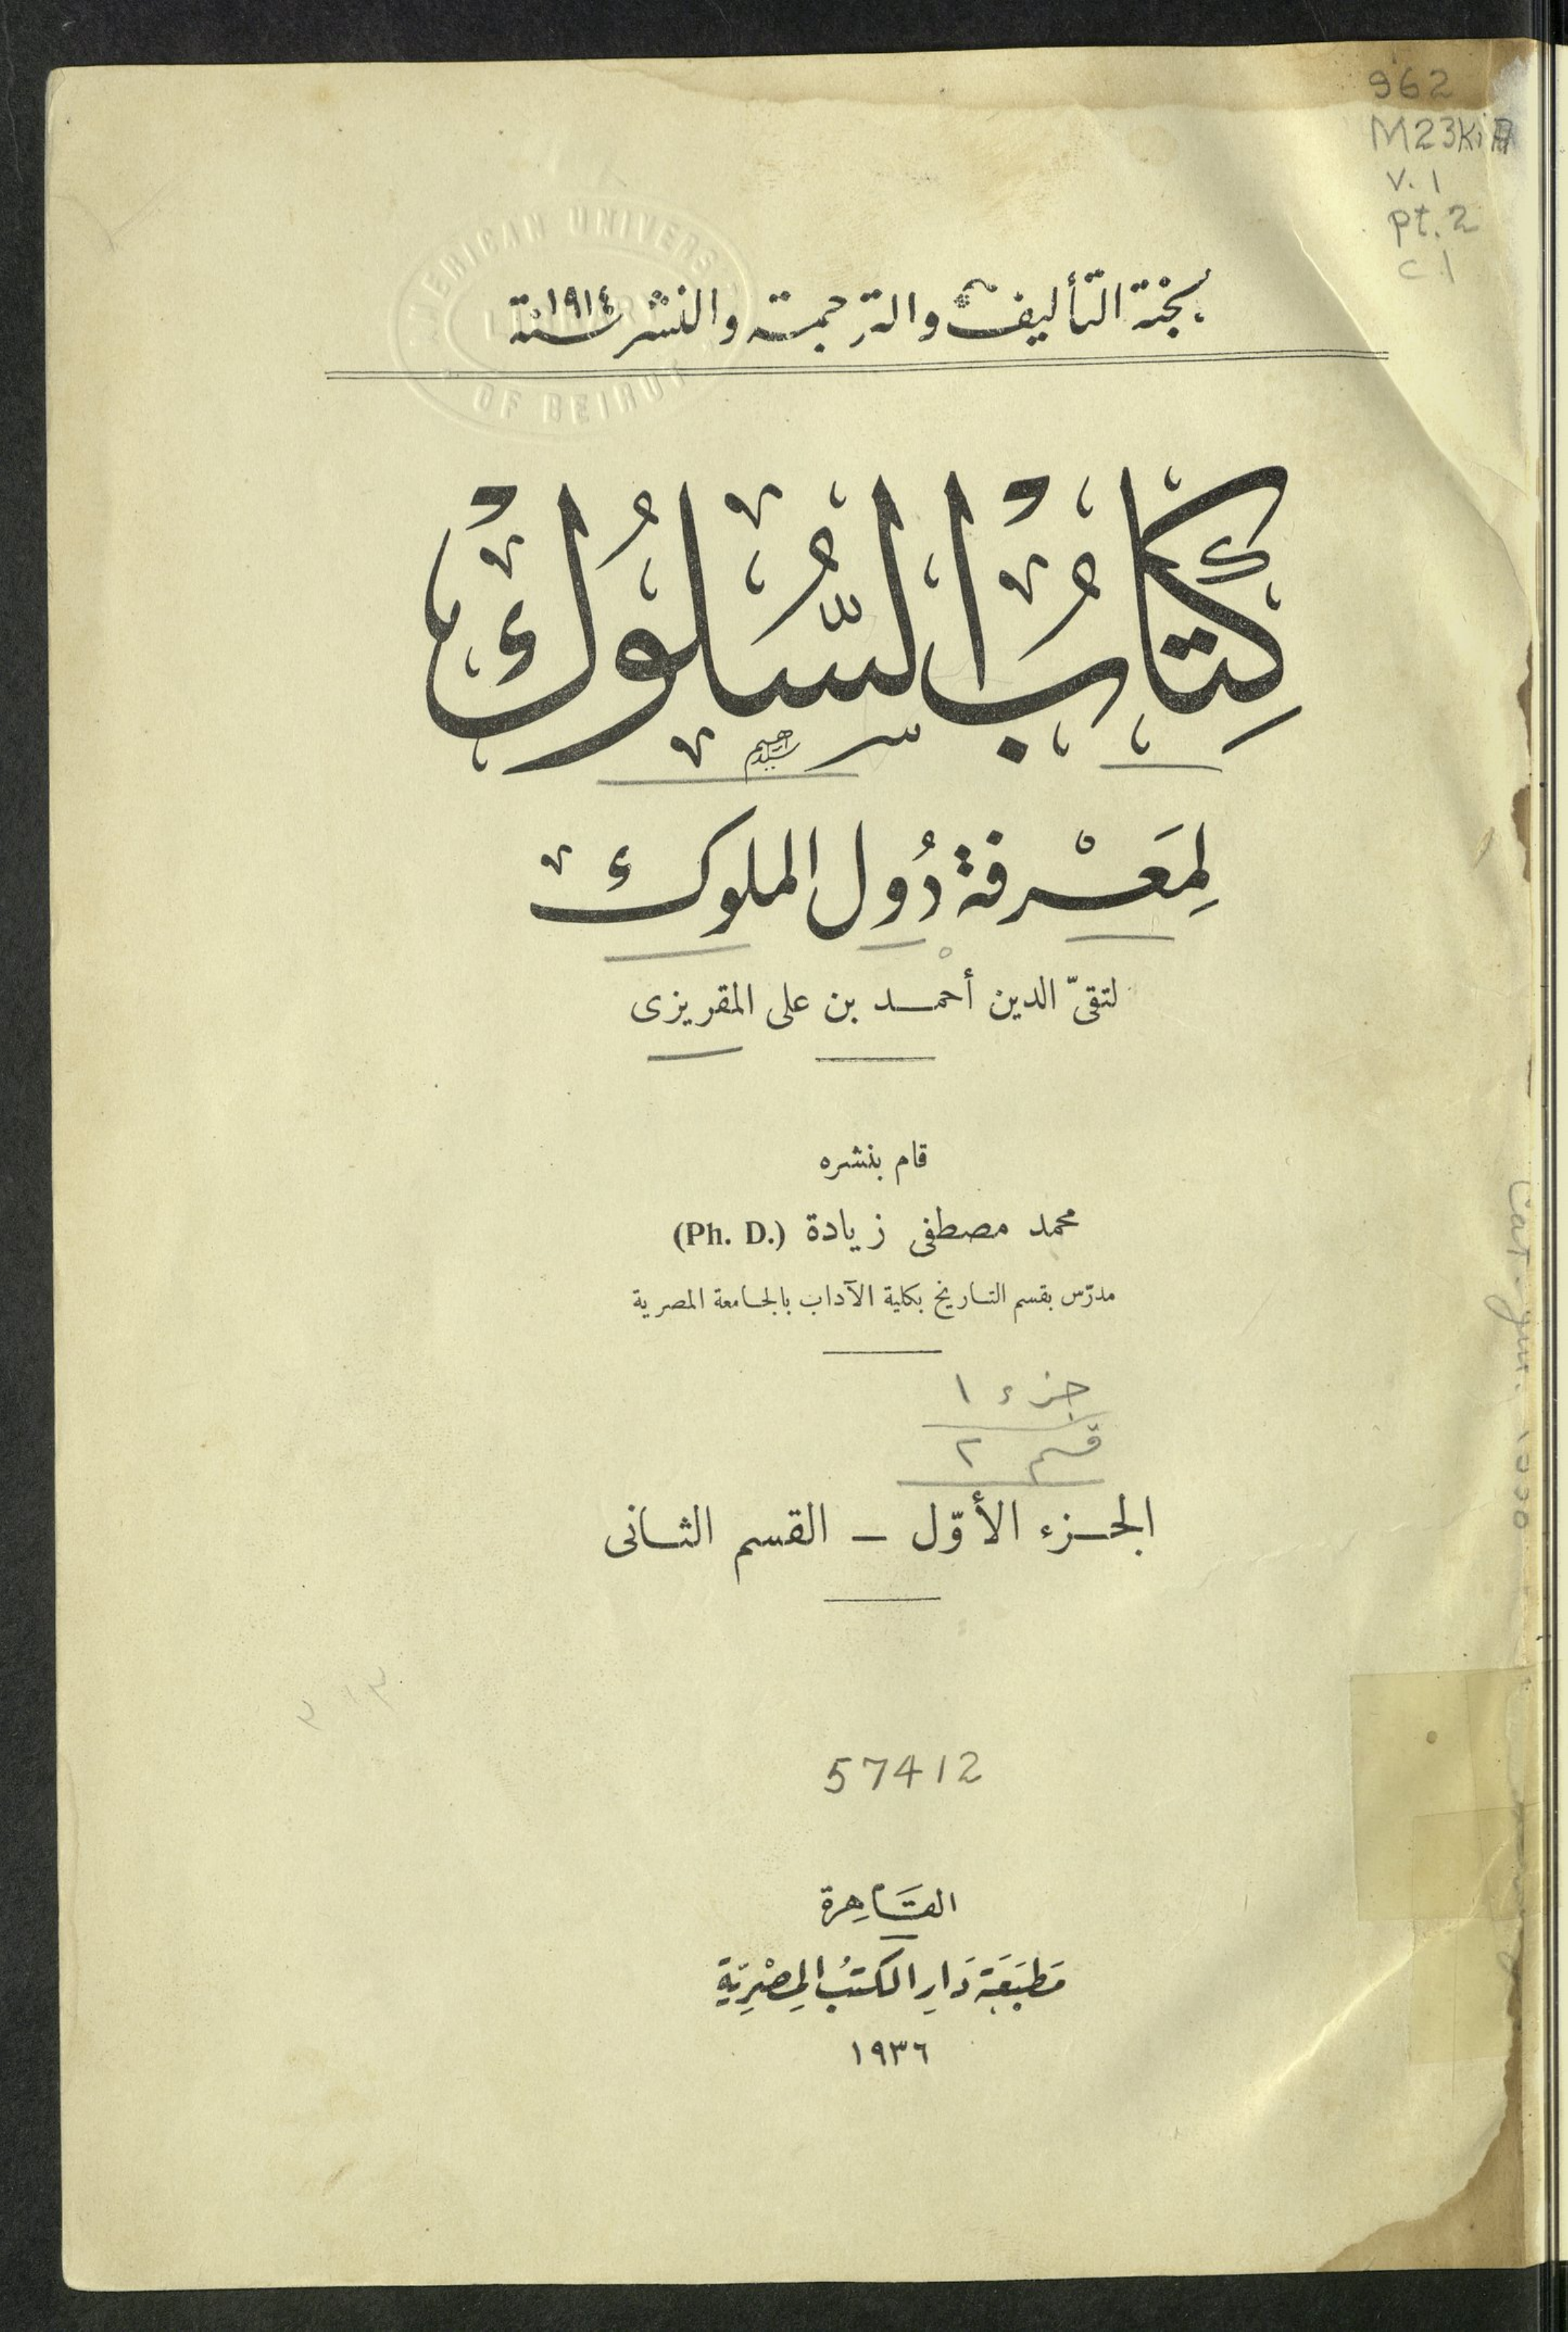 962
M23kiA
v. 1
pt. 2
c.1
AMERICAN UNIVERSITY
LIBRARY
OF BEIRUT
لجنة التأليف والترجمة والنشر سنة ١٩١٤
كِتَابُ السُّلُوكْ
لِمَعْرفة دُول الملوك
لتقىّ الدين أحمد بن على المقريزى
قام بنشره
محمد مصطفى زيادة (Ph. D.)
مدرّس بقسم التاريخ بكلية الآداب بالجامعة المصرية
جزء ١
قسم ٢
الجزء الأوّل — القسم الثانى
57412
القَاهِرة
مَطبَعَة دَارِ الكتُب المِصْرِيّةِ
١٩٣٦